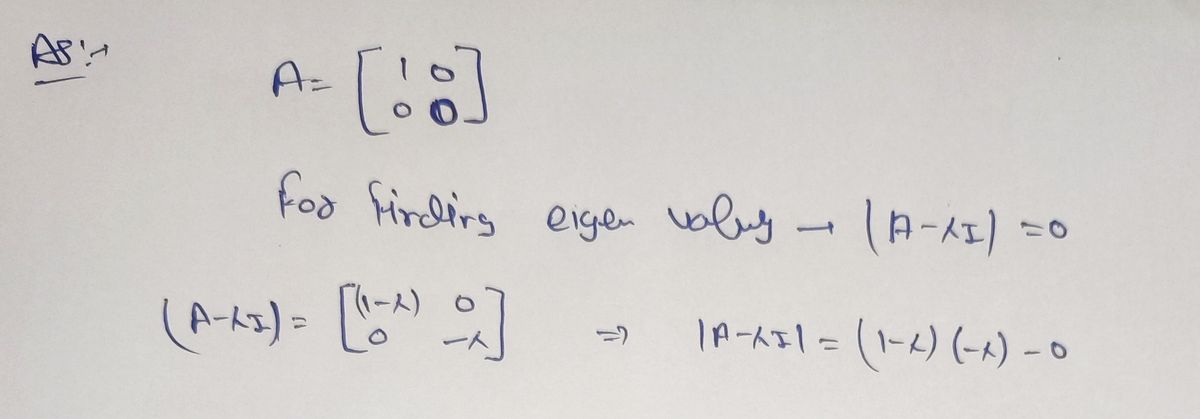 A8:→
A = [ 1 0
0 0 ]
for finding eigen values → |A-λI| = 0
(A-λI) = [ (1-λ) 0
0 -λ ] ⇒ |A-λI| = (1-λ)(-λ) - 0